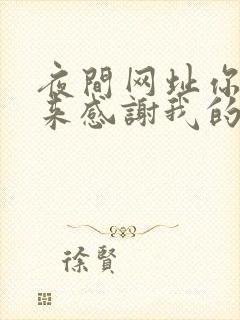 夜間网址你
来感謝我的
徐賢